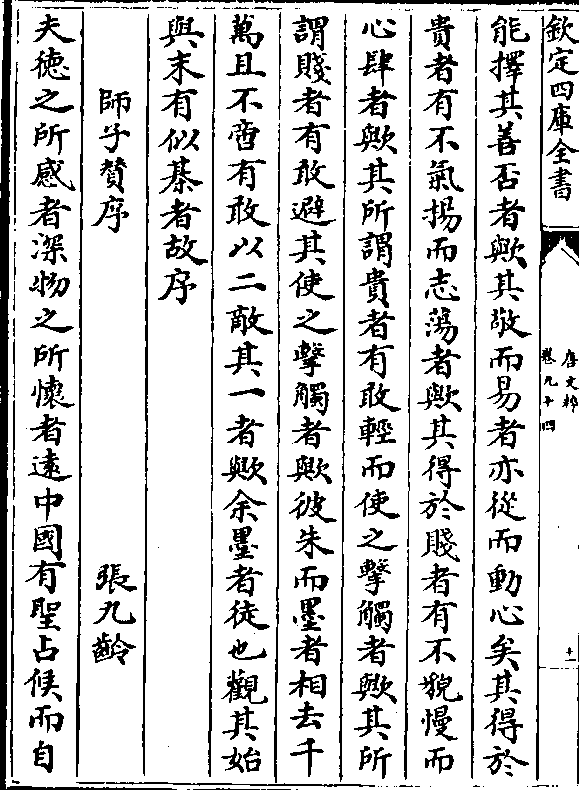 欽定四庫全書
唐文粹
卷九十四
十一
能擇其善否者歟其敬而易者亦從而動心矣其得於
貴者有不氣揚而志蕩者歟其得於賤者有不貌慢而
心肆者歟其所謂貴者有敢輕而使之擊觸者歟其所
謂賤者有敢避其使之擊觸者歟彼朱而墨者相去千
萬且不啻有敢以二敵其一者歟余墨者徒也觀其始
與末有似棊者故序
師子賛序 張九齡
夫德之所感者深物之所懷者遠中國有聖占候而自